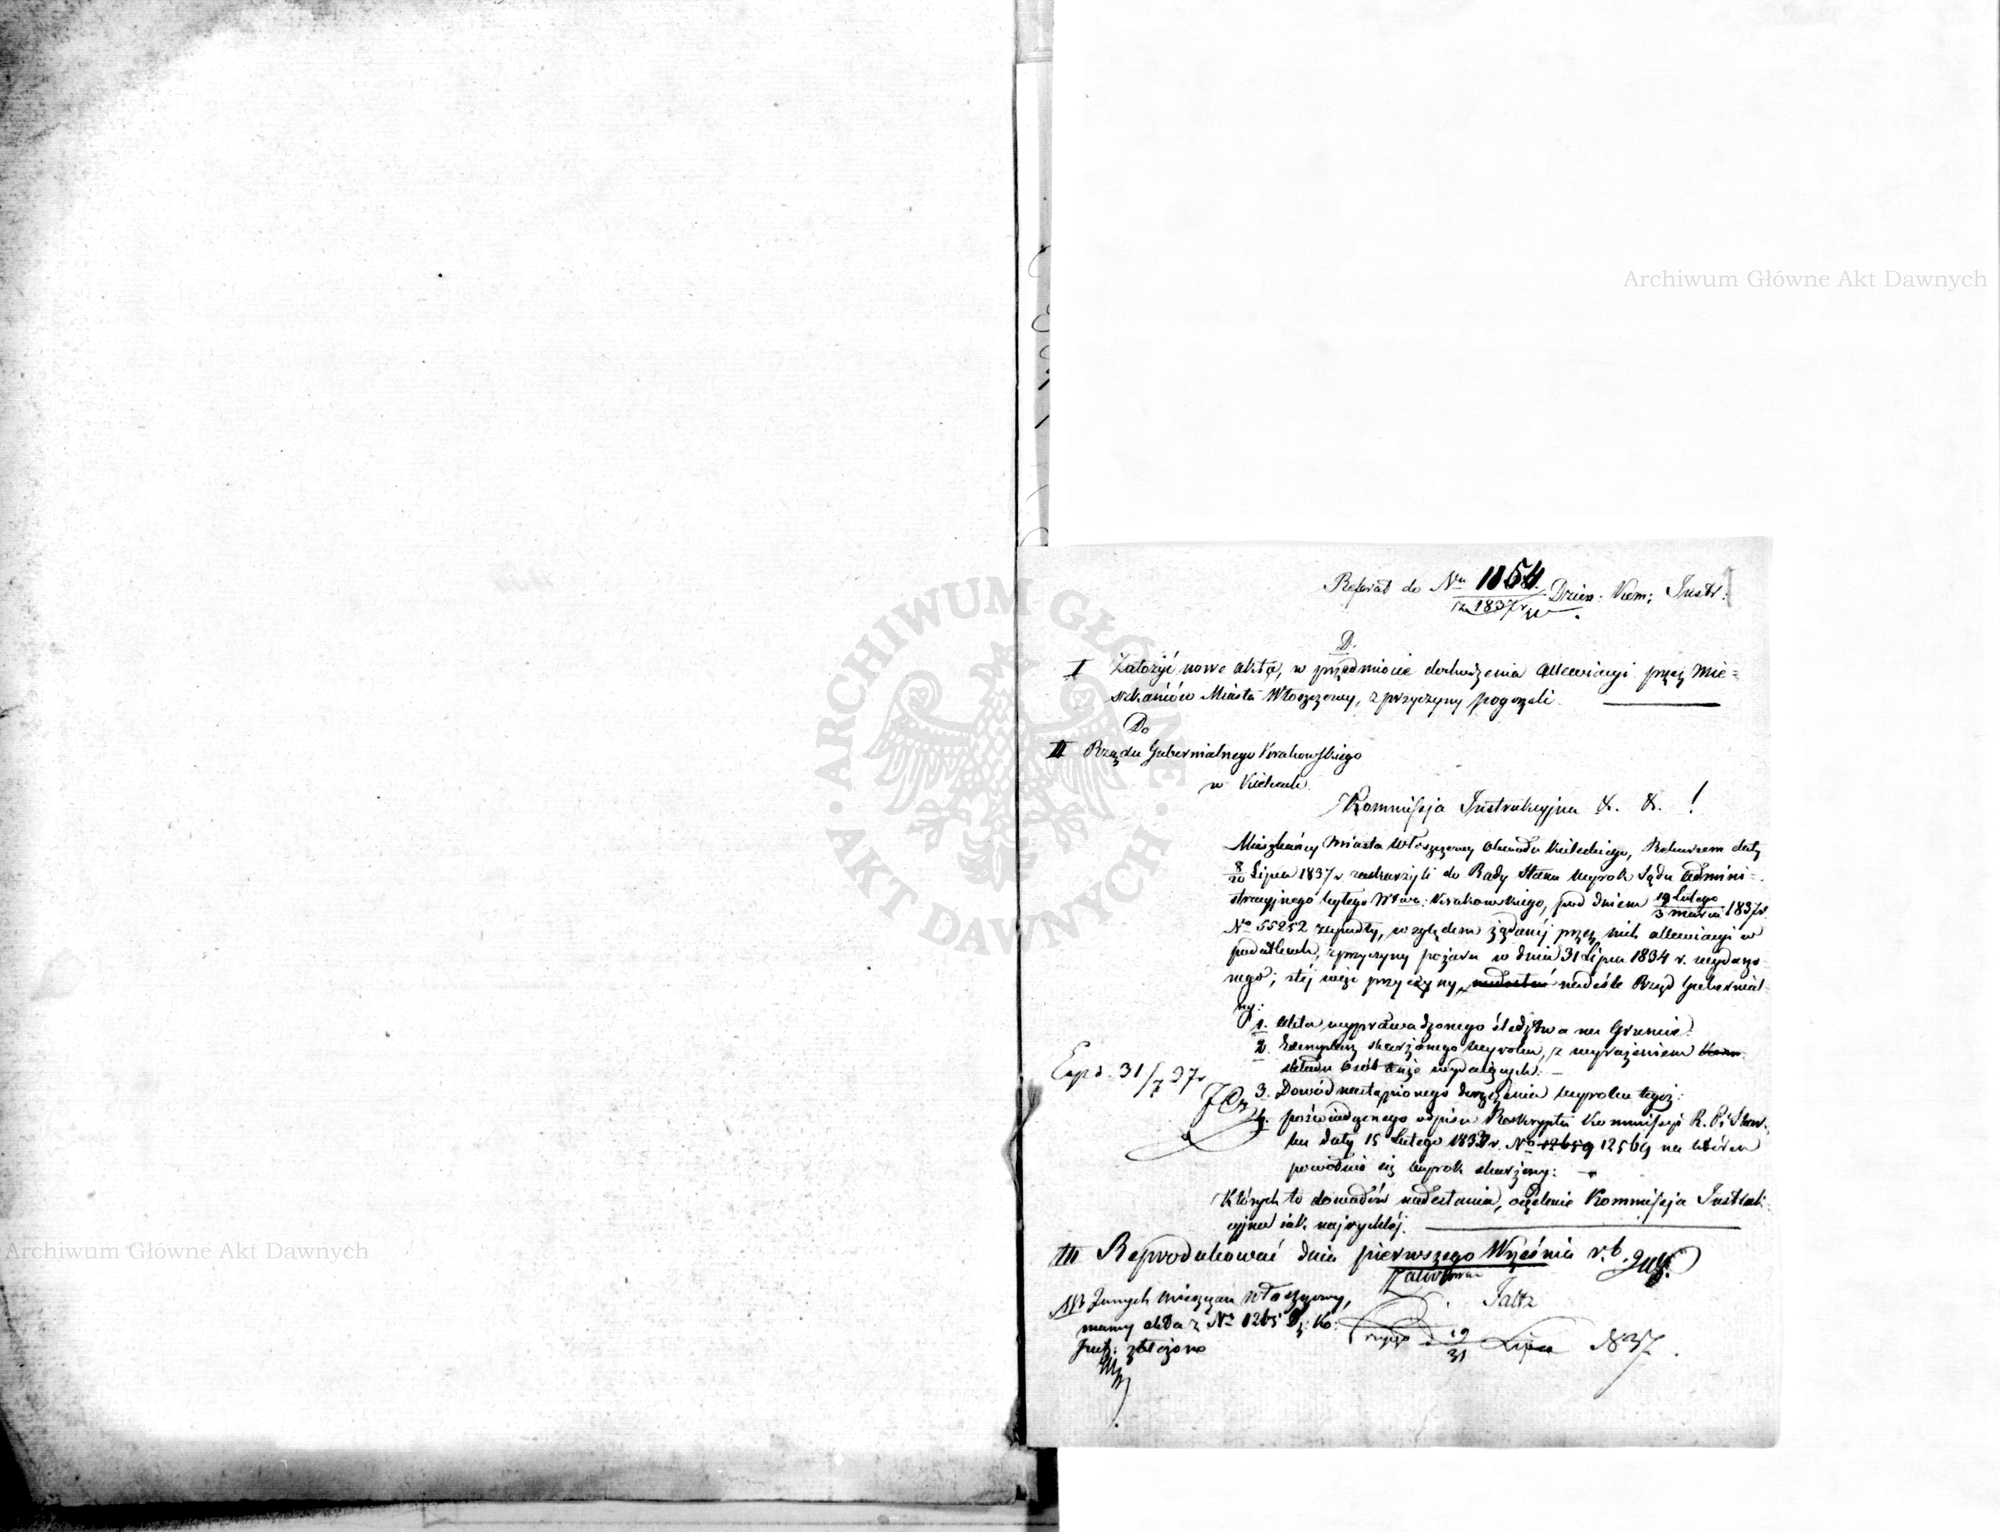 Archiwum Główne Akt Dawnych
ARCHIWUM GŁÓWNE AKT DAWNYCH
Referat do Nru 1154 Dzien: Kom: Instr:
z 1837 r.
D.
I Założyć nowe akta, w przedmiocie dochodzenia allewiacyi przez Mie=
szkańców Miasta Włoszczowy, z przyczyny pogorzeli.
Do
II Rządu Gubernialnego Krakowskiego
w Kielcach.
Kommissja Instrukcyjna &. &. !
Mieszkańcy Miasta Włoszczowy Obwodu Kieleckiego, Rekursem daty
8/20 Lipca 1837 r zaskarżyli do Rady Stanu wyrok Sądu Admini=
stracyjnego byłego Wtwa: Krakowskiego, pod dniem 19 Lutego/3 Marca 1837 r.
No 55252 zapadły, względem żądanéj przez nich allewiacyi w
podatkach, z przyczyny pożaru w dniu 31 Lipca 1834 r. wydarzo=
nego; z téj więc przyczyny, nadeśle Rząd Gubernial=
ny:
1. Akta wyprawadzonego śledztwa na Gruncie.
2. Exemplarz skarżonego wyroku, z wyrażeniem
składu Osób onże wydających. —
3. Dowód nastąpionego doręczenia wyroku tegoż:
4. poświadczonego odpisu Reskryptu Kommissyi R. P. i Skar=
bu daty 15 Lutego 1837 r. No 12659 12569 na którem
powodnie się wyrok skarżony: —
Których to dowodów nadesłania, oczekuie Kommissja Instruk=
cyjna iak najrychléj.
Expd. 31/7 37 r
III Reprodukować dnia pierwszego Września r. b.
Jaltz
NB Innych Mieszczan Włoszczowy,
mamy akta z No 1265 Dz: Ko:
Inst: złożone
d. 19/31 Lipca 1837.
Archiwum Główne Akt Dawnych